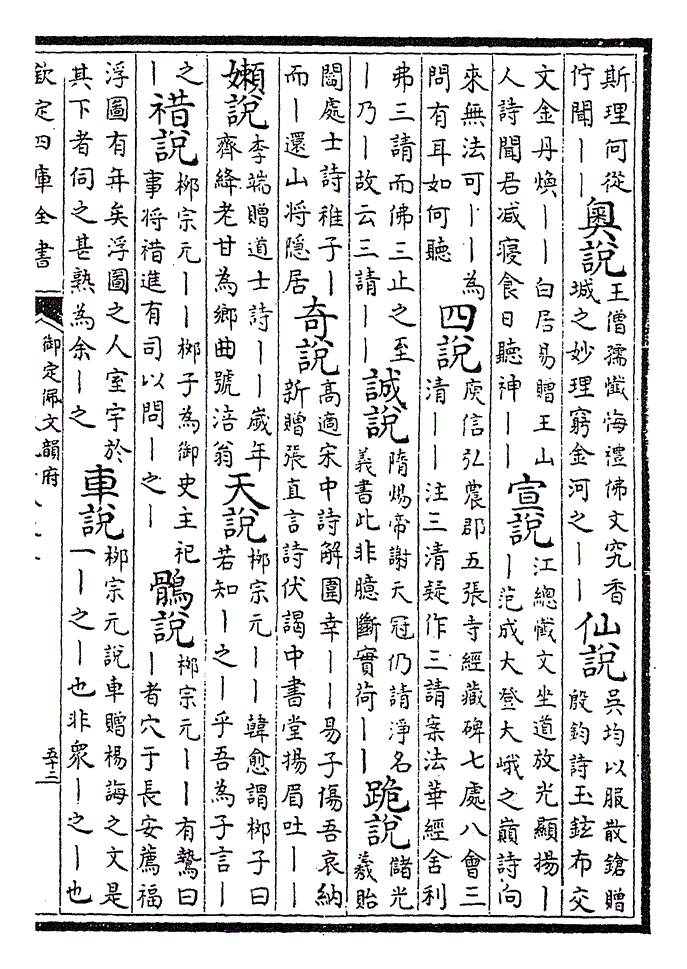 斯理何從
佇聞丨丨
奧說
王僧孺懺悔禮佛文究香
城之妙理窮金河之丨丨
仙說
吳均以服散鎗贈
殷鈞詩玉鉉布交
文金丹煥丨丨白居易贈王山
人詩聞君减寢食日聽神丨丨
宣說
江總懺文坐道放光顯揚丨
丨范成大登大峨之巔詩向
來無法可丨丨為
問有耳如何聽
四說
庾信弘農郡五張寺經藏碑七處八會三
清丨丨注三清疑作三請案法華經舍利
弗三請而佛三止之至
丨乃丨故云三請丨丨
誠說
隋煬帝謝天冠仍請淨名
義書此非臆斷實荷丨丨
跪說
儲光
羲貽
閻處士詩稚子丨
而丨還山將隱居
奇說
高適宋中詩解圍幸丨丨易子傷吾哀納
新贈張直言詩伏謁中書堂揚眉吐丨丨
嬾說
李端贈道士詩丨丨歲年
齊絳老甘為鄉曲號涪翁
天說
柳宗元丨丨韓愈謂柳子曰
若知丨之丨乎吾為子言丨
之
丨
䄍說
柳宗元丨丨柳子為御史主祀
事將䄍進有司以問丨之丨
鶻說
柳宗元丨丨有鷙曰
丨者穴于長安薦福
浮圖有年矣浮圖之人室宇於
其下者伺之甚熟為余丨之
車說
柳宗元說車贈楊誨之文是
一丨之丨也非衆丨之丨也
欽定四庫全書
御定佩文韻府
五十二